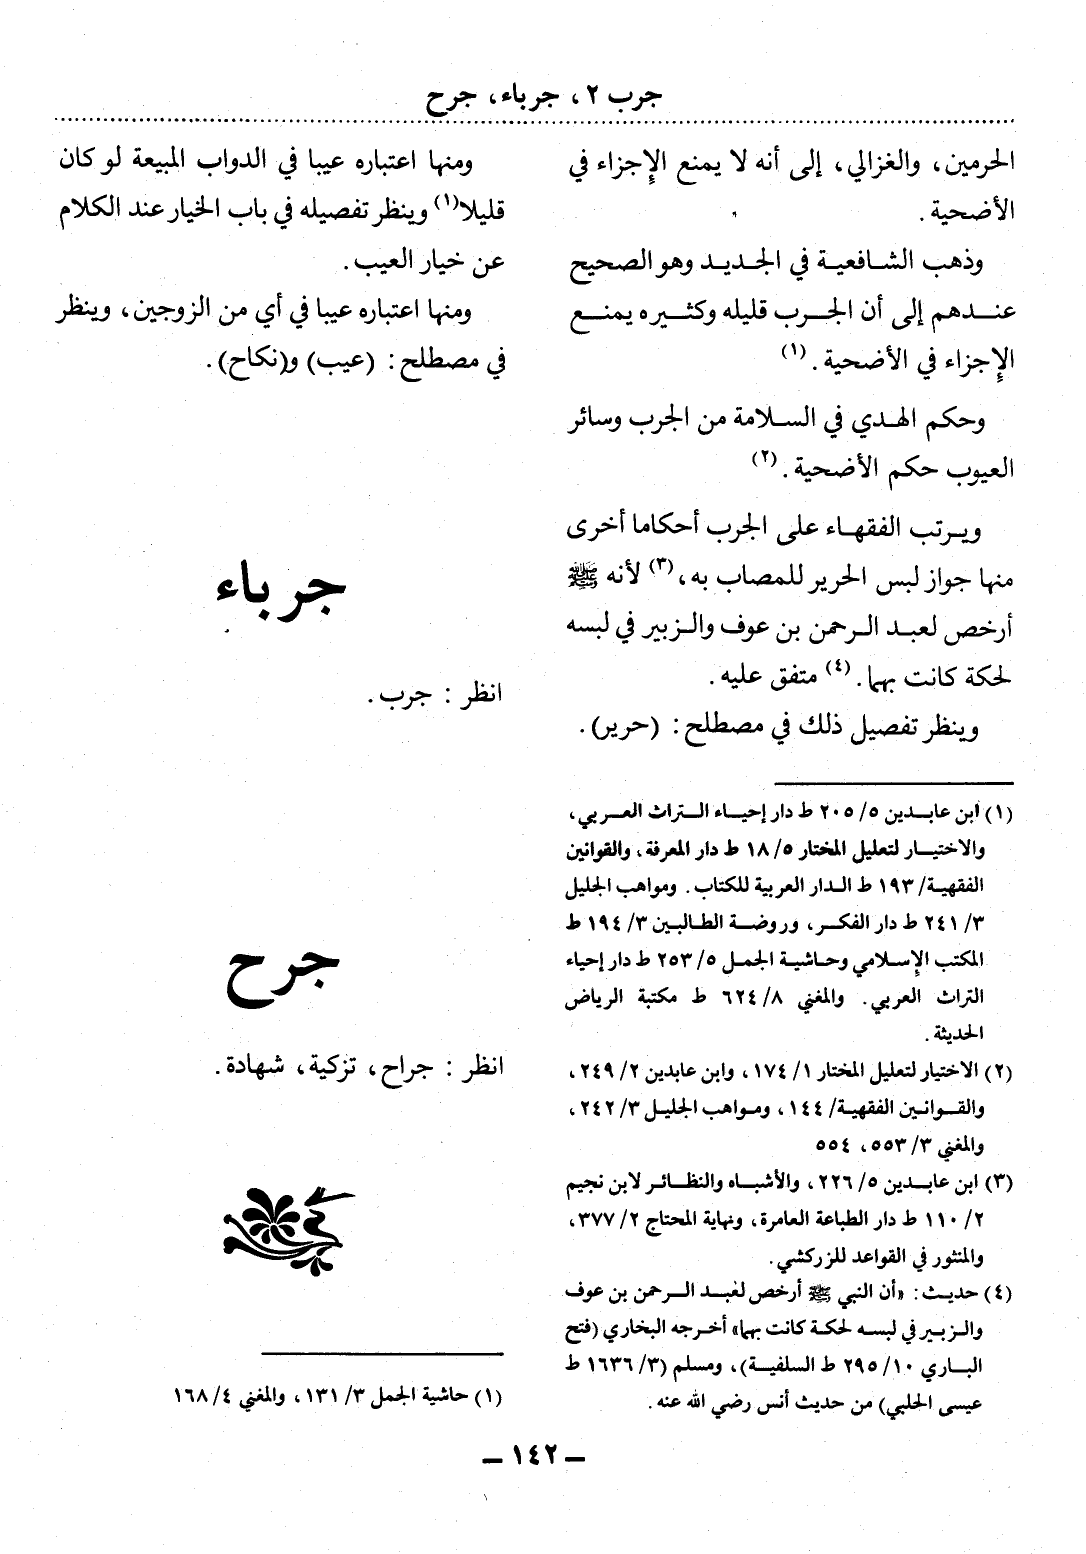 جرب ٢، جرباء، جرح
الحرمين، والغزالي، إلى أنه لا يمنع الإجزاء في
الأضحية.
وذهب الشافعية في الجديد وهو الصحيح
عندهم إلى أن الجرب قليله وكثيره يمنع
الإجزاء في الأضحية. (١)
وحكم الهدي في السلامة من الجرب وسائر
العيوب حكم الأضحية. (٢)
ويرتب الفقهاء على الجرب أحكاما أخرى
منها جواز لبس الحرير للمصاب به، (٣) لأنه ﷺ
أرخص لعبد الرحمن بن عوف والزبير في لبسه
لحكة كانت بهما. (٤) متفق عليه.
وينظر تفصيل ذلك في مصطلح: (حرير).
(١) ابن عابدين ٥/ ٢٠٥ ط دار إحياء التراث العربي،
والاختيار لتعليل المختار ٥/ ١٨ ط دار المعرفة، والقوانين
الفقهية/ ١٩٣ ط الدار العربية للكتاب. ومواهب الجليل
٣/ ٢٤١ ط دار الفكر، وروضة الطالبين ٣/ ١٩٤ ط
المكتب الإسلامي وحاشية الجمل ٥/ ٢٥٣ ط دار إحياء
التراث العربي. والمغني ٨/ ٦٢٤ ط مكتبة الرياض
الحديثة.
(٢) الاختيار لتعليل المختار ١/ ١٧٤، وابن عابدين ٢/ ٢٤٩،
والقوانين الفقهية/ ١٤٤، ومواهب الجليل ٣/ ٢٤٢،
والمغني ٣/ ٥٥٣، ٥٥٤
(٣) ابن عابدين ٥/ ٢٢٦، والأشباه والنظائر لابن نجيم
٢/ ١١٠ ط دار الطباعة العامرة، ونهاية المحتاج ٢/ ٣٧٧،
والمنثور في القواعد للزركشي.
(٤) حديث: «أن النبي ﷺ أرخص لعبد الرحمن بن عوف
والزبير في لبسه لحكة كانت بهما» أخرجه البخاري (فتح
الباري ١٠/ ٢٩٥ ط السلفية)، ومسلم (٣/ ١٦٣٦ ط
عيسى الحلبي) من حديث أنس رضي الله عنه.
ومنها اعتباره عيبا في الدواب المبيعة لو كان
قليلا(١) وينظر تفصيله في باب الخيار عند الكلام
عن خيار العيب.
ومنها اعتباره عيبا في أي من الزوجين، وينظر
في مصطلح: (عيب) و(نكاح).
جرباء
انظر : جرب.
جرح
انظر : جراح، تزكية، شهادة.
(١) حاشية الجمل ٣/ ١٣١، والمغني ٤/ ١٦٨
– ١٤٢ –